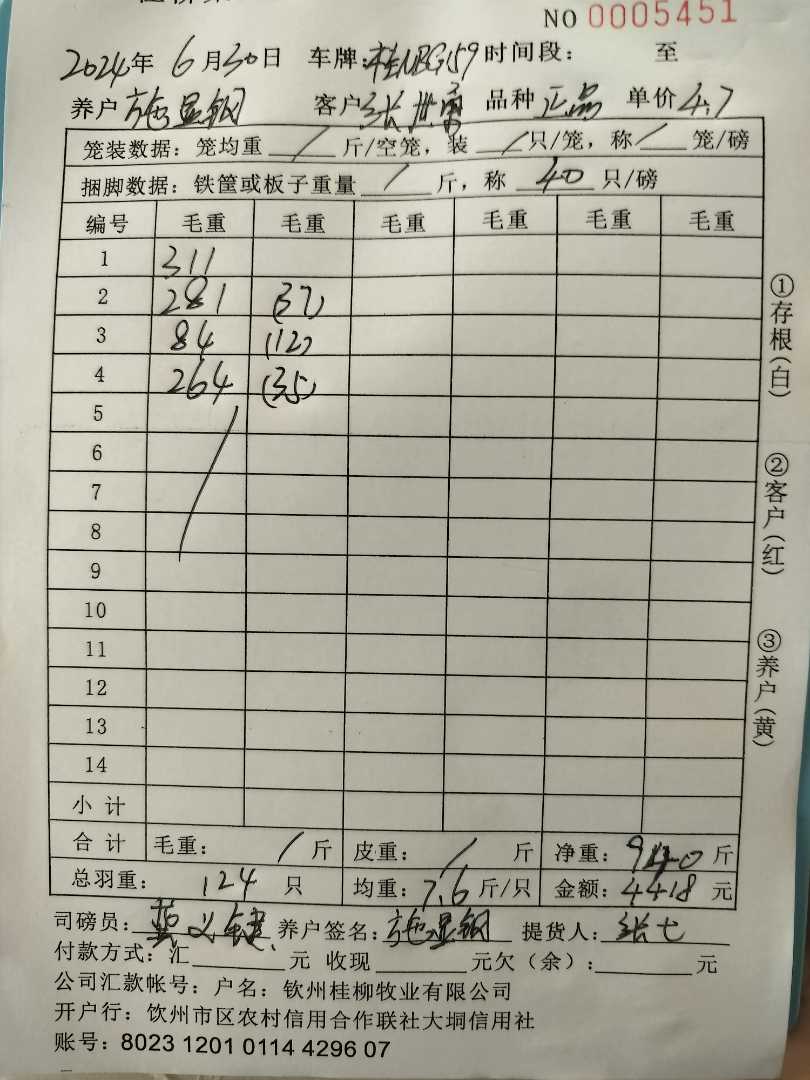 NO 0005451
2024年 6月30日 车牌:桂NBG159 时间段: 至
养户 施显钢 客户 张世富 品种 正品 单价 4.7
笼装数据: 笼均重 / 斤/空笼, 装 / 只/笼, 称 / 笼/磅
捆脚数据: 铁筐或板子重量 / 斤, 称 40 只/磅
编号 毛重 毛重 毛重 毛重 毛重 毛重
1 311
2 281 (37)
3 84 (12)
4 264 (35)
5
6
7
8
9
10
11
12
13
14
小计
合计 毛重: / 斤 皮重: / 斤 净重: 940 斤
总羽重: 124 只 均重: 7.6 斤/只 金额: 4418 元
司磅员: 养户签名: 施显钢 提货人: 张七
付款方式: 汇 元 收现 元欠(余): 元
公司汇款帐号: 户名: 钦州桂柳牧业有限公司
开户行: 钦州市区农村信用合作联社大垌信用社
账号: 8023 1201 0114 4296 07
①存根(白)
②客户(红)
③养户(黄)